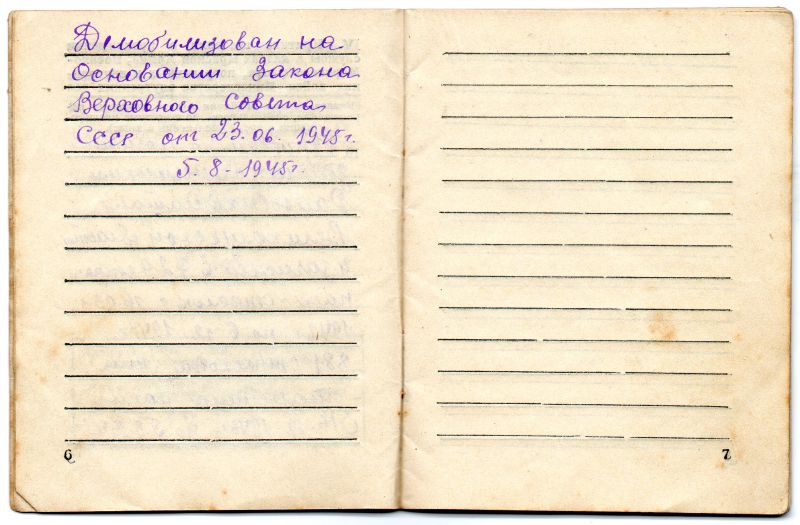 Демобилизован на
Основании Закона
Верховного Совета
СССР от 23.06.1945г.
5-8-1945г.
6
7